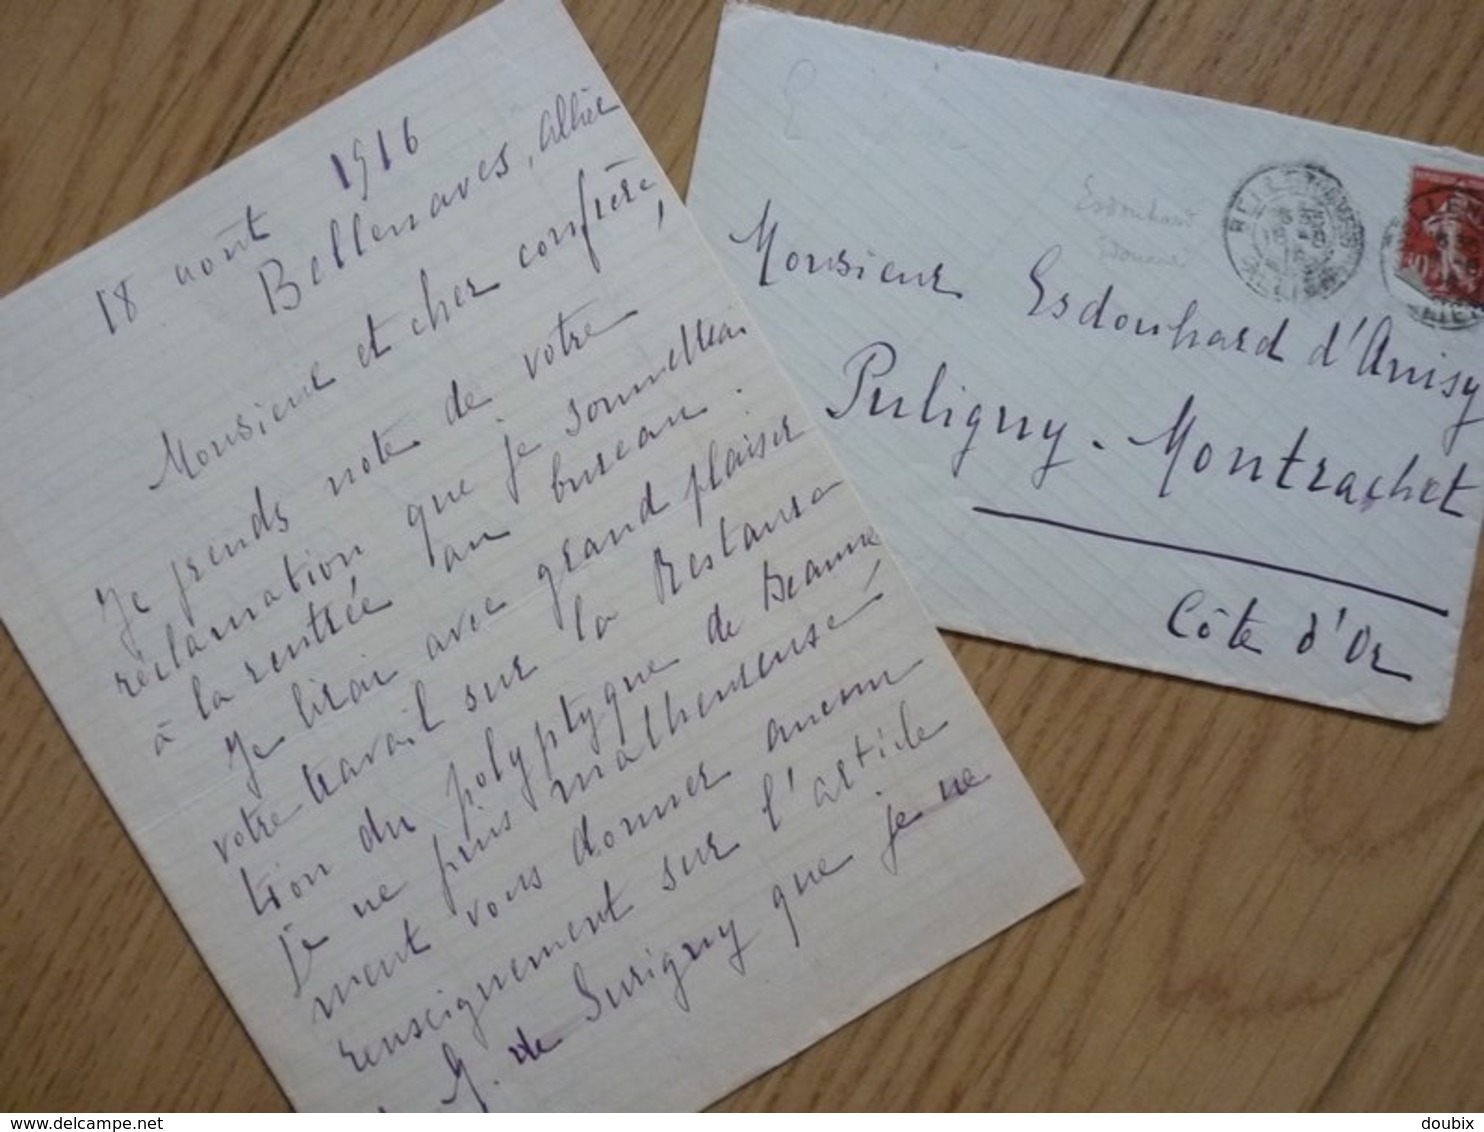 18 août 1916
Bellenaves, Allier
Monsieur et cher confrère,
Je prends note de votre
réclamation que je soumettrai
à la rentrée au bureau.
Je lirai avec grand plaisir
votre travail sur la Restaura-
tion du polyptyque de Beaune
je ne puis malheureuse-
ment vous donner aucun
renseignement sur l'article
de Surigny que je ne
Esdouhard
Edouard
Monsieur Esdouhard d'Anisy
Puligny-Montrachet
Côte d'Or
delcampe.net
doubix